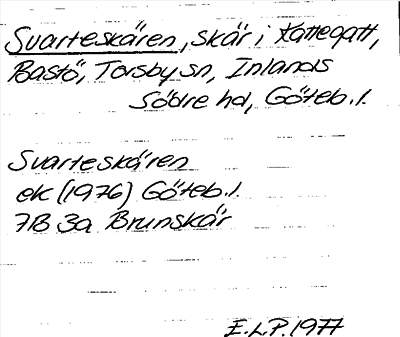 Svarteskären, skär i Kattegatt,
Bastö, Torsby sn, Inlands
Södre hd, Göteb. l.
Svarteskären
ek (1976) Göteb. l.
7B 3a Brunskär
E.L.P. 1977